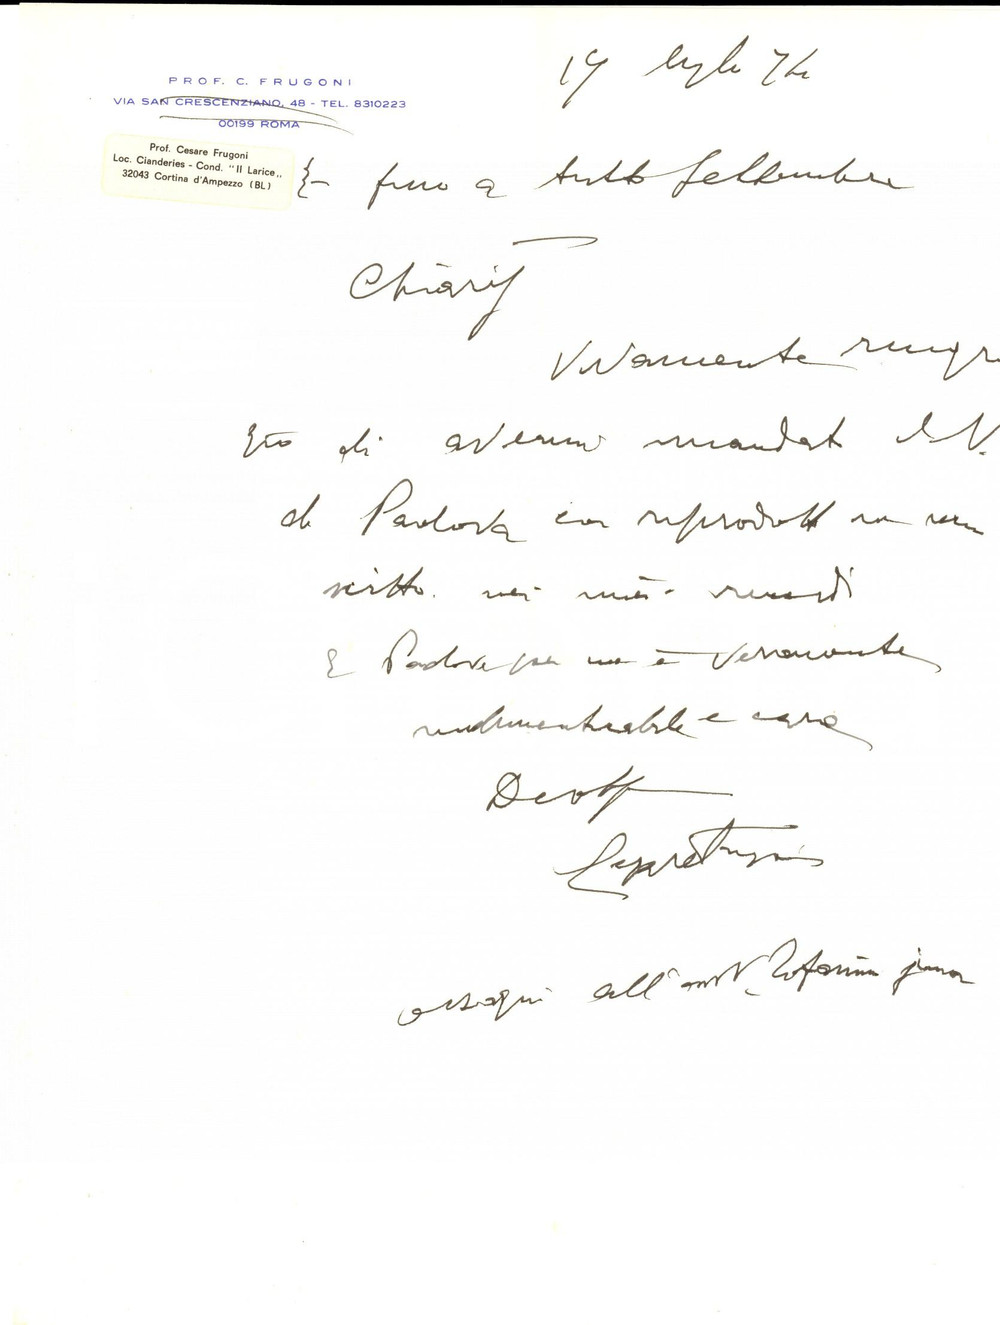 PROF. C. FRUGONI
VIA SAN CRESCENZIANO, 48 - TEL. 8310223
00199 ROMA
Prof. Cesare Frugoni
Loc. Cianderies - Cond. "Il Larice"
32043 Cortina d'Ampezzo (BL)
19 luglio 74
fino a tutto settembre
Chiar
Vivamente ringra
zio di avermi mandato il N.
di Padova con riprodotto un
scritto. nei miei ricordi
E Padova per me è veramente
indimenticabile e cara
Dev
Cesare Frugoni
ossequi all'